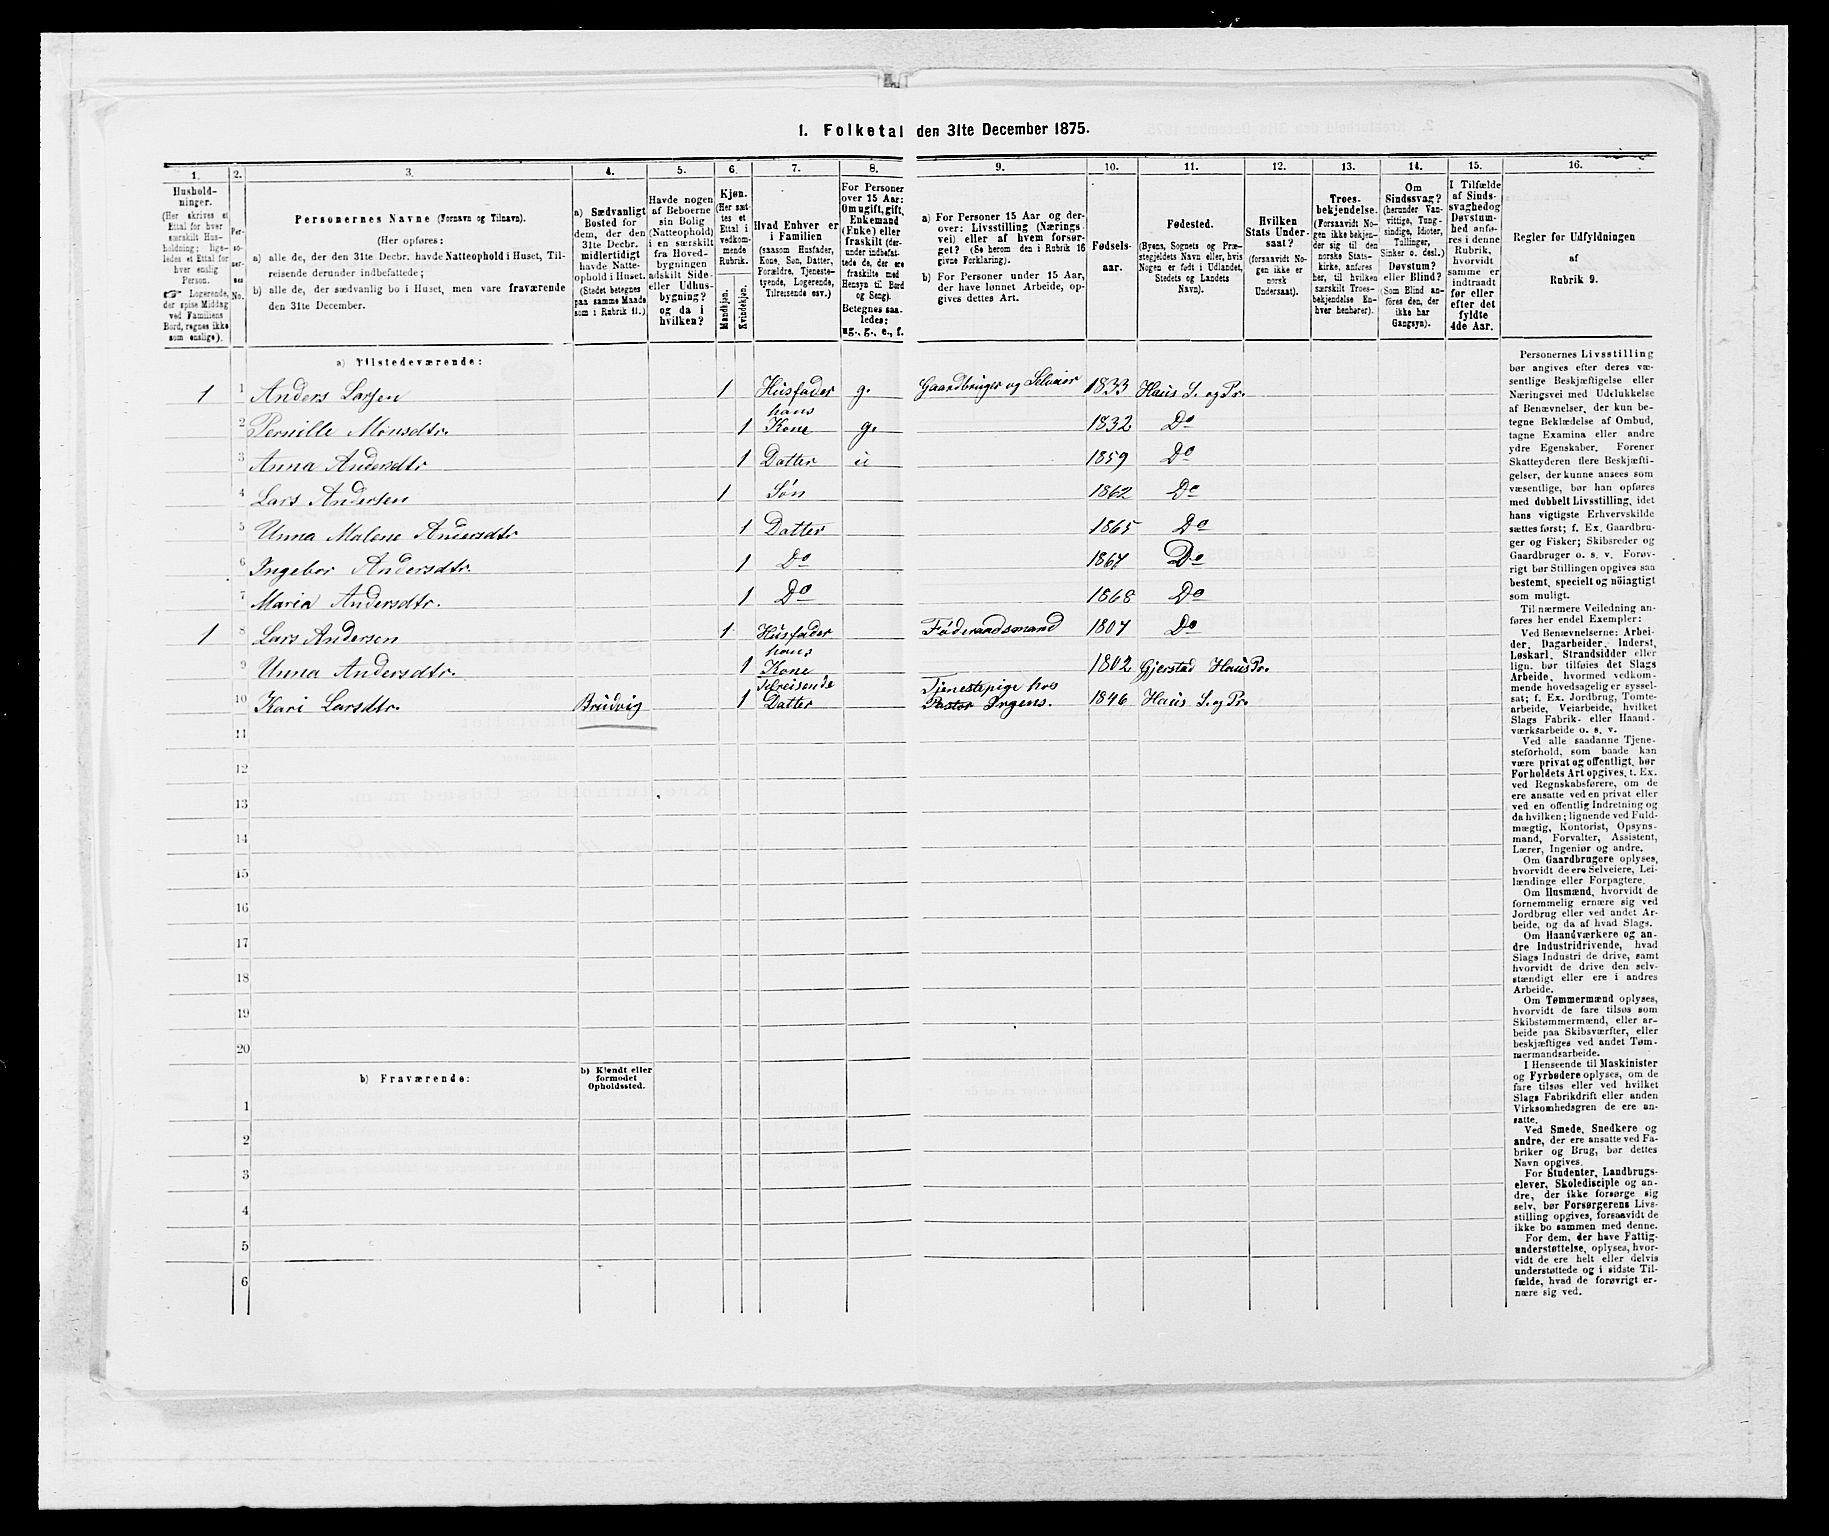 1. Folketal den 31te December 1875.
1.
2.
3.
4.
5.
6.
7.
8.
9.
10.
11.
12.
13.
14.
15.
16.
Hushold-
ninger.
(Her skrives et
Ettal for hver
særskilt Hus-
holdning; lige-
ledes et Ettal for
hver enslig
Person.
☞ Logerende,
der spise Middag
ved Familiens
Bord, regnes ikke
som enslige).
Per-
so-
ner-
nes
No.
Personernes Navne (Fornavn og Tilnavn).
(Her opføres:
a) alle de, der den 31te Decbr. havde Natteophold i Huset, Til-
reisende derunder indbefattede;
b) alle de, der sædvanlig bo i Huset, men vare fraværende
den 31te December.
a) Sædvanligt
Bosted for
dem, der den
31te Decbr.
midlertidigt
havde Natte-
ophold i Huset.
(Stedet betegnes
paa samme Maade
som i Rubrik 11.)
Havde nogen
af Beboerne
sin Bolig
(Natteophold)
i en særskilt
fra Hoved-
bygningen
adskilt Side-
eller Udhus-
bygning?
og da i
hvilken?
Kjøn.
(Her sæt-
tes et
Ettal i
vedkom-
mende
Rubrik.
Mandkjøn.
Kvindekjøn.
Hvad Enhver er
i Familien
(saasom Husfader,
Kone, Søn, Datter,
Forældre, Tjeneste-
tyende, Logerende,
Tilreisende osv.)
For Personer
over 15 Aar:
Om ugift, gift,
Enkemand
(Enke) eller
fraskilt (der-
under indbefat-
tede de, der ere
fraskilte med
Hensyn til Bord
og Seng).
Betegnes saa-
ledes:
ug., g., e., f.
a) For Personer 15 Aar og der-
over: Livsstilling (Nærings-
vei) eller af hvem forsør-
get? (Se herom den i Rubrik 16
givne Forklaring).
b) For Personer under 15 Aar,
der have lønnet Arbeide, op-
gives dettes Art.
Fødsels-
aar.
Fødested.
(Byens, Sognets og Præ-
stegjeldets Navn eller, hvis
Nogen er født i Udlandet,
Stedets og Landets
Navn).
Hvilken
Stats Under-
saat?
(forsaavidt No-
gen ikke er
norsk
Undersaat).
Troes-
bekjendelse.
(Forsaavidt No-
gen ikke bekjen-
der sig til den
norske Stats-
kirke, anføres
her, til hvilken
særskilt Troes-
bekjendelse En-
hver henhører).
Om
Sindssvag?
(herunder Van-
vittige, Tung-
sindige, Idioter,
Tullinger,
Sinker o. desl.)
Døvstum?
eller Blind?
(Som Blind an-
føres den, der
ikke har
Gangsyn).
I Tilfælde
af Sinds-
svaghed og
Døvstum-
hed anfø-
res i denne
Rubrik,
hvorvidt
samme er
indtraadt
før eller
efter det
fyldte
4de Aar.
Regler for Udfyldningen
af
Rubrik 9.
a) Tilstedeværende:
1 1 Anders Larsen 1 Husfader g. Gaardbruger og Selveier 1833 Haus S. og Pr.
2 Pernille Monsdtr. 1 hans Kone g. 1832 Do
3 Anna Andersdtr 1 Datter u 1859 Do
4 Lars Andersen 1 Søn 1862 Do
5 Unna Malene Andersdtr 1 Datter 1865 Do
6 Ingebor Andersdtr. 1 Do 1867 Do
7 Maria Andersdtr. 1 Do 1868 Do
1 8 Lars Andersen 1 Husfader Føderaadsmand 1807 Do
9 Unna Andersdtr. 1 hans Kone 1802 Gjerstad Haus Pr.
10 Kari Larsdtr. Brudvig 1 Tilreisende Datter Tjenestepige hos Pastor Irgens. 1846 Haus S. og Pr.
11
12
13
14
15
16
17
18
19
20
b) Fraværende:
b) Kjendt eller
formodet
Opholdssted.
1
2
3
4
5
6
Personernes Livsstilling
bør angives efter deres væ-
sentlige Beskjæftigelse eller
Næringsvei med Udelukkelse
af Benævnelser, der kun be-
tegne Beklædelse af Ombud,
tagne Examina eller andre
ydre Egenskaber. Forener
Skatteyderen flere Beskjæfti-
gelser, der kunne ansees som
væsentlige, bør han opføres
med dobbelt Livsstilling, idet
hans vigtigste Erhvervskilde
sættes først; f. Ex. Gaardbru-
ger og Fisker; Skibsreder og
Gaardbruger o. s. v. Forøv-
rigt bør Stillingen opgives saa
bestemt, specielt og nøiagtigt
som muligt.
Til nærmere Veiledning an-
føres her endel Exempler:
Ved Benævnelserne: Arbei-
der, Dagarbeider, Inderst,
Løskarl, Strandsidder eller
lign. bør tilføies det Slags
Arbeide, hvormed vedkom-
mende hovedsagelig er syssel-
sat; f. Ex. Jordbrug, Tomte-
arbeide, Veiarbeide, hvilket
Slags Fabrik- eller Haand-
værksarbeide o. s. v.
Ved alle saadanne Tjene-
steforhold, som baade kan
være privat og offentligt, bør
Forholdets Art opgives, t. Ex.
ved Regnskabsførere, om de
ere ansatte ved en privat eller
ved en offentlig Indretning og
da hvilken; lignende ved Fuld-
mægtig, Kontorist, Opsyns-
mand, Forvalter, Assistent,
Lærer, Ingeniør og andre.
Om Gaardbrugere oplyses,
hvorvidt de ere Selveiere, Lei-
lændinge eller Forpagtere.
Om Husmænd, hvorvidt de
fornemmelig ernære sig ved
Jordbrug eller ved andet Ar-
beide, og da af hvad Slags.
Om Haandværkere og an-
dre Industridrivende, hvad
Slags Industri de drive, samt
hvorvidt de drive den selv-
stændigt eller ere i andres
Arbeide.
Om Tømmermænd oplyses,
hvorvidt de fare tilsøs som
Skibstømmermænd, eller ar-
beide paa Skibsværfter, eller
beskjæftiges ved andet Tøm-
mermandsarbeide.
I Henseende til Maskinister
og Fyrbødere oplyses, om de
fare tilsøs eller ved hvilket
Slags Fabrikdrift eller anden
Virksomhedsgren de ere an-
satte.
Ved Smede, Snedkere og
andre, der ere ansatte ved Fa-
briker og Brug, bør dettes
Navn opgives.
For Studenter, Landbrugs-
elever, Skoledisciple og an-
dre, der ikke forsørge sig
selv, bør Forsørgerens Livs-
stilling opgives, forsaavidt de
ikke bo sammen med denne.
For dem, der have Fattig-
understøttelse, oplyses, hvor-
vidt de ere helt eller delvis
understøttede og i sidste Til-
fælde, hvad de forøvrigt er-
nære sig ved.